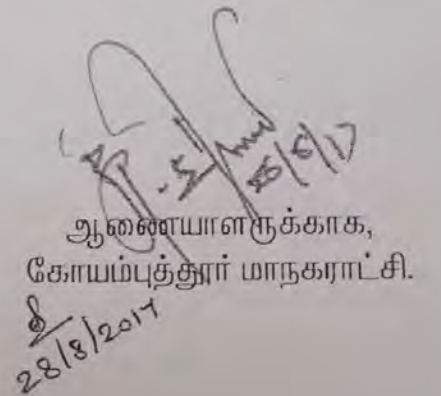 28/8/17
ஆணையாளருக்காக,
கோயம்புத்தூர் மாநகராட்சி.
28/8/2017